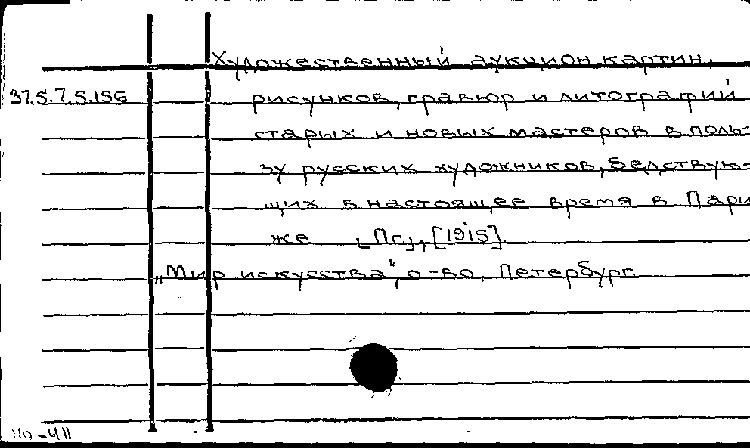 Художественный аукцион картин,
37.5.7.5.156 рисунков, гравюр и литографий
старых и новых мастеров в поль-
зу русских художников, бедствую-
щих в настоящее время в Пари
же [Пг], [1915].
„Мир искусства", о-во, Петербург